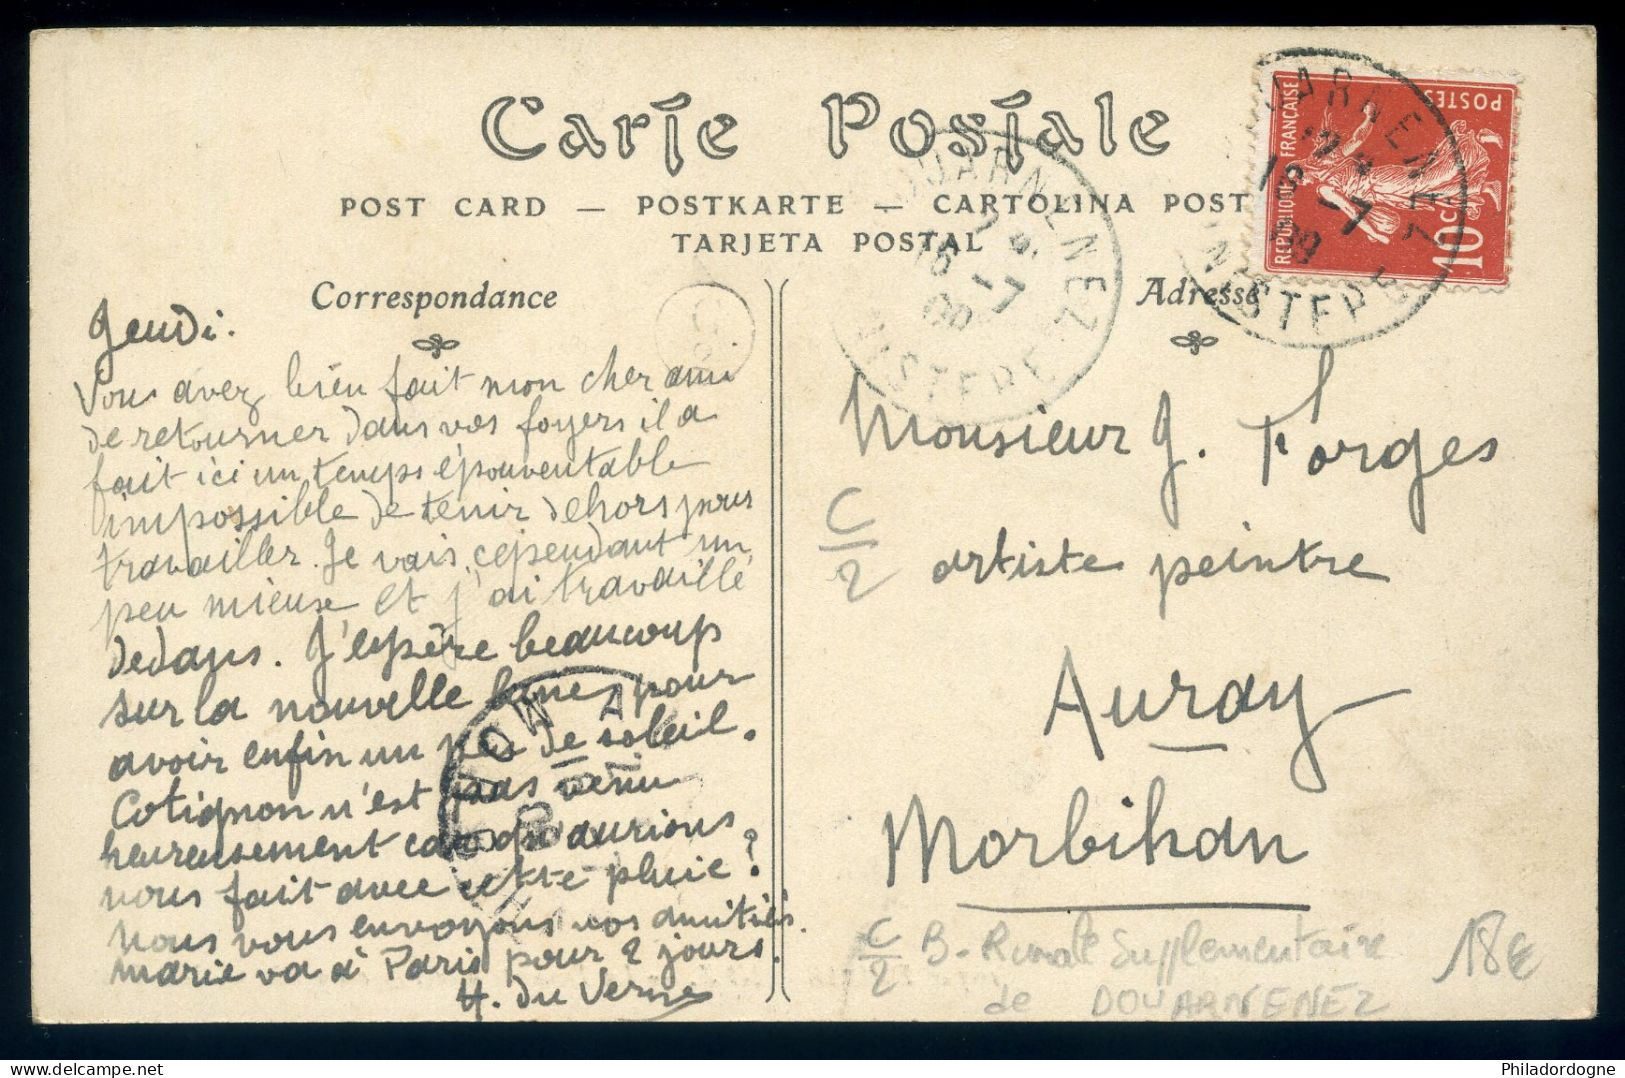 Carte Postale
POST CARD — POSTKARTE — CARTOLINA POST
TARJETA POSTAL
Correspondance
Adresse
RÉPUBLIQUE FRANÇAISE
POSTES
10c
Jeudi.
Vous avez bien fait mon cher ami
de retourner dans vos foyers il a
fait ici un temps épouventable
impossible de tenir dehors pour
travailler. Je vais cependant un
peu mieuse et j'ai travaillé
dedans. J'espère beaucoup
sur la nouvelle lune pour
avoir enfin un peu de soleil.
Cotignon n'est pas venu
heureusement car qu'aurions
nous fait avec cette pluie ?
nous vous envoyons nos amitiés.
marie va à Paris pour 2 jours.
H. du Verne
Monsieur J. Forges
artiste peintre
Auray
Morbihan
C/2
C/2 B. Rurale Supplementaire
de DOUARNENEZ
18€
https://www.delcampe.net
Philadordogne